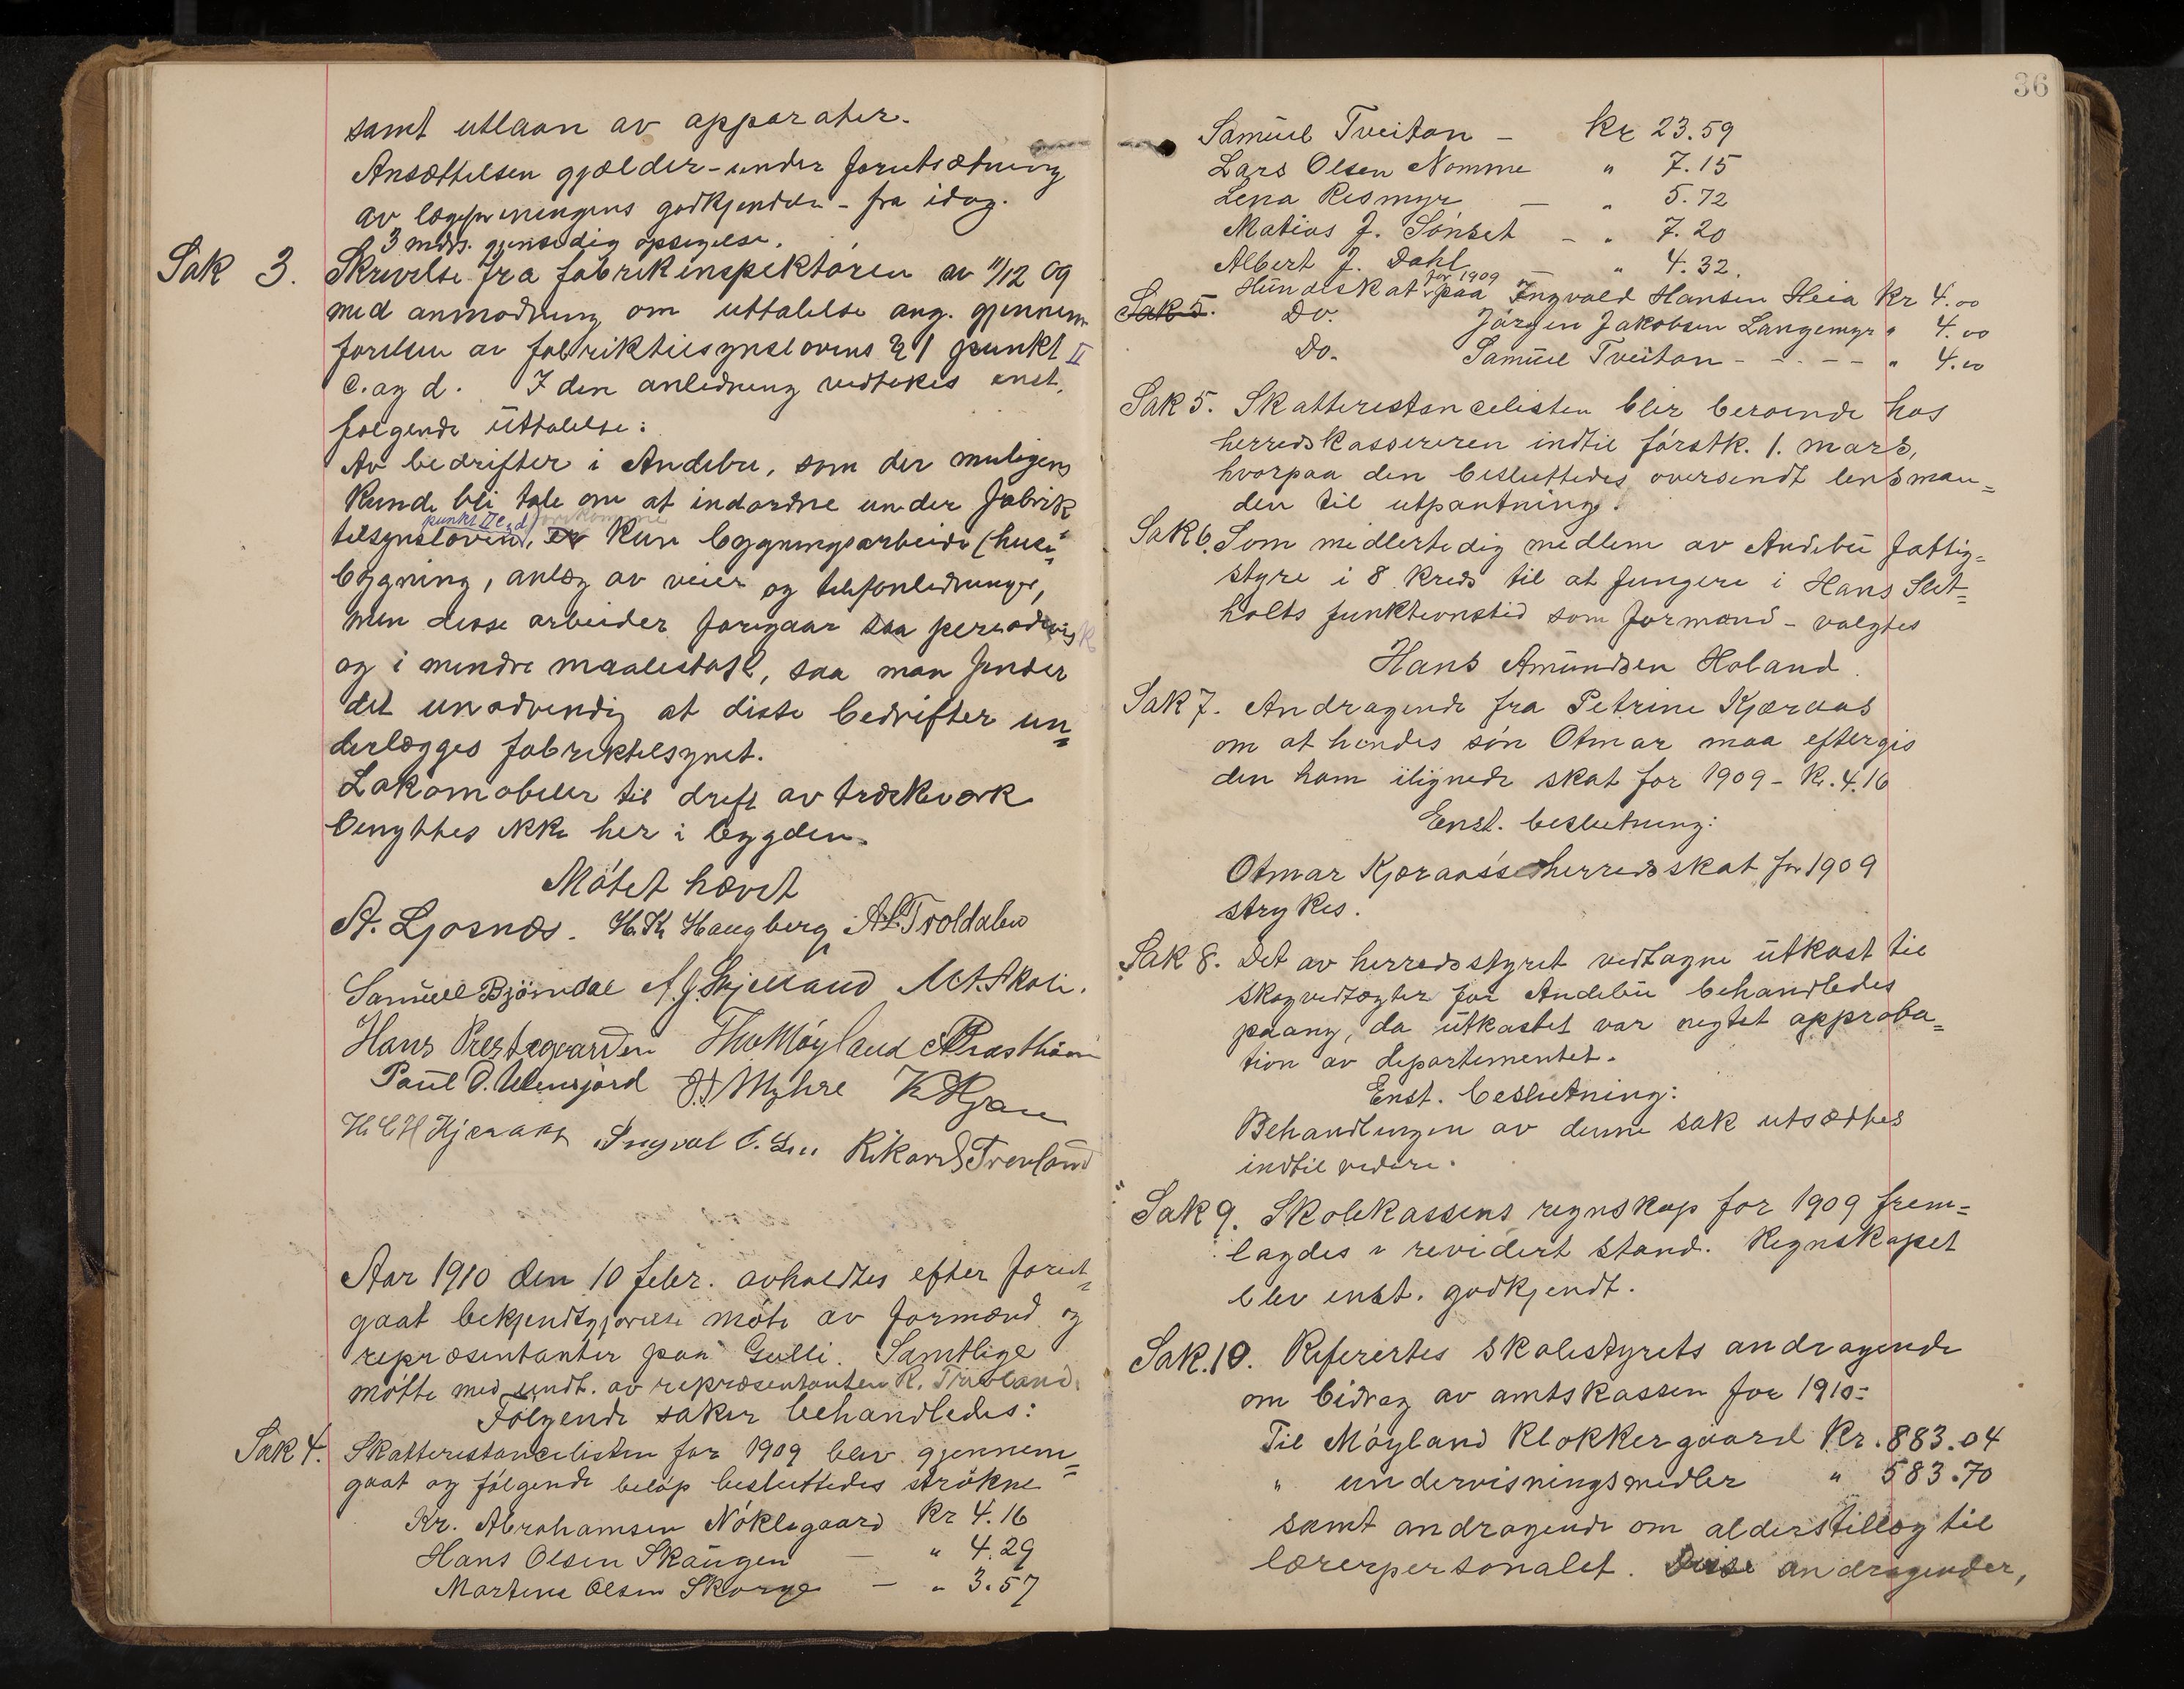 samt utlaan av apparater.
Ansættelsen gjælder - under forutsætning
av lægeforeningens godkjendelse - fra idag.
3 mdrs. gjensidig opsigelse.
Sak 3. Skrivelse fra fabrikinspektøren av 11/12 09
med anmodning om uttalelse ang. gjennem-
førelsen av fabriktilsynslovens § 1 punkt II
c. og d. I den anledning vedtokes enst.
følgende uttalelse:
Av bedrifter i Andebu, som der muligens
kunde bli tale om at indordne under fabrik
punkt II c, d forekomme
tilsynsloven, er kun bygningsarbeide (hus=
bygning, anlæg av veier og telefonledninger,
men disse arbeider foregaar saa periodevis
og i mindre maalestok, saa man finder
det unødvendig at disse bedrifter un=
derlægges fabriktilsynet.
Lokomobiler til drift av træskeverk
benyttes ikke her i bygden.
Møtet hævet
A. Ljosnæs. H. K. Haugberg A. L. Troldalen
Samuel Bjørndal A. J. Skjelland M. A. Skoli.
Hans Prestegaarden Th. Møyland A. Præsthimi
Paul O. Ulensjord J. J. Myhre K. Hjau
H C H Kjæraas Ingval C. Lie Rikard Trevland
Aar 1910 den 10 febr. avholdtes efter forut=
gaat bekjendtgjørelse møte av formænd og
repræsentanter paa Gulli. Samtlige
møtte med undt. av repræsentanten R. Trevland.
Følgende saker behandledes:
Sak 4. Skatterestancelisten for 1909 blev gjennem=
gaat og følgende beløp besluttedes strøkne
Kr. Abrahamsen Nøklegaard Kr 4.16
Hans Olsen Skaugen — " 4.29
Martine Olsen Skorge — " 3.57
36
Samuel Tveitan — Kr 23.59
Lars Olsen Nomme " 7.15
Lena Rismyr — " 5.72
Matias J. Sønset — " 7.20
Albert J. Dahl — " 4.32.
for 1909
Hundeskat paa Ingvald Hansen Heia Kr 4.00
Sak 5. Do. Jørgen Jakobsen Langemyr " 4.00
Do. Samuel Tveitan - - - - " 4.00
Sak 5. Skatterestancelisten blir beroende hos
herredskassereren indtil førstk. 1. mars,
hvorpaa den besluttedes oversendt lensman=
den til utpantning.
Sak 6. Som midlertidig medlem av Andebu fattig=
styre i 8 kreds til at fungere i Hans Slet=
holts funktionstid som formand - valgtes
Hans Amundsen Holand.
Sak 7. Andragende fra Petrine Kjæraas
om at hendes søn Otmar maa eftergis
den ham ilignede skat for 1909 - Kr. 4.16
Enst. beslutning:
Otmar Kjæraas's herredsskat for 1909
strykes.
Sak 8. Det av herredsstyret vedtagne utkast til
skogvedtægter for Andebu behandledes
paany, da utkastet var negtet approba=
tion av departementet.
Enst. beslutning:
Behandlingen av denne sak utsættes
indtil videre.
Sak 9. Skolekassens regnskap for 1909 frem=
lagdes i revidert stand. Regnskapet
blev enst. godkjendt.
Sak. 10. Referertes skolestyrets andragende
om bidrag av amtskassen for 1910:
Til Møyland klokkergaard Kr. 883.04
" undervisningsmidler " 583.70
samt andragende om alderstillæg til
lærerpersonalet. Disse andragender,